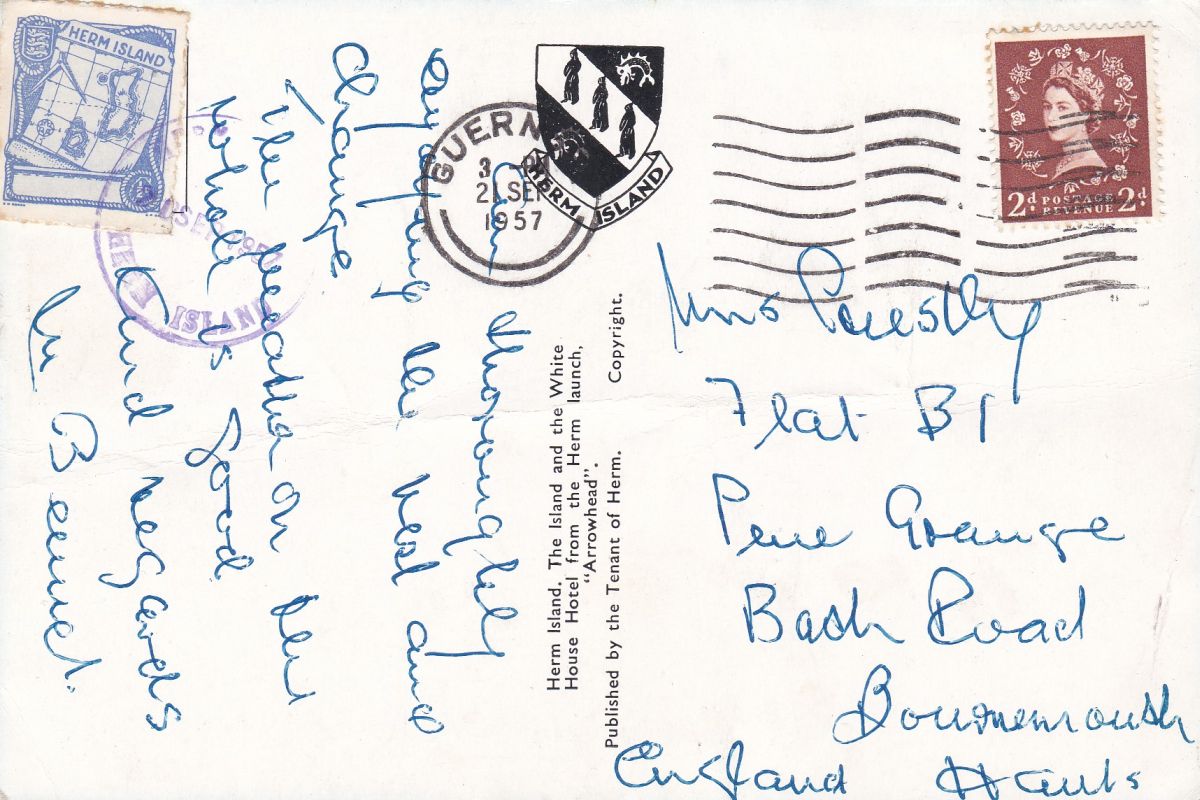 HERM ISLAND
HERM ISLAND
GUERN
3
21 SEP
1957
HERM ISLAND
2d POSTAGE REVENUE 2d
am thoroughly
enjoying the rest and
change
The weather on the
whole is good
Kind regards
Bennet.
Herm Island. The Island and the White
House Hotel from the Herm launch,
"Arrowhead".
Published by the Tenant of Herm. Copyright.
Priestley
Flat B1
Pine Grange
Bath Road
Bournemouth
England Hants